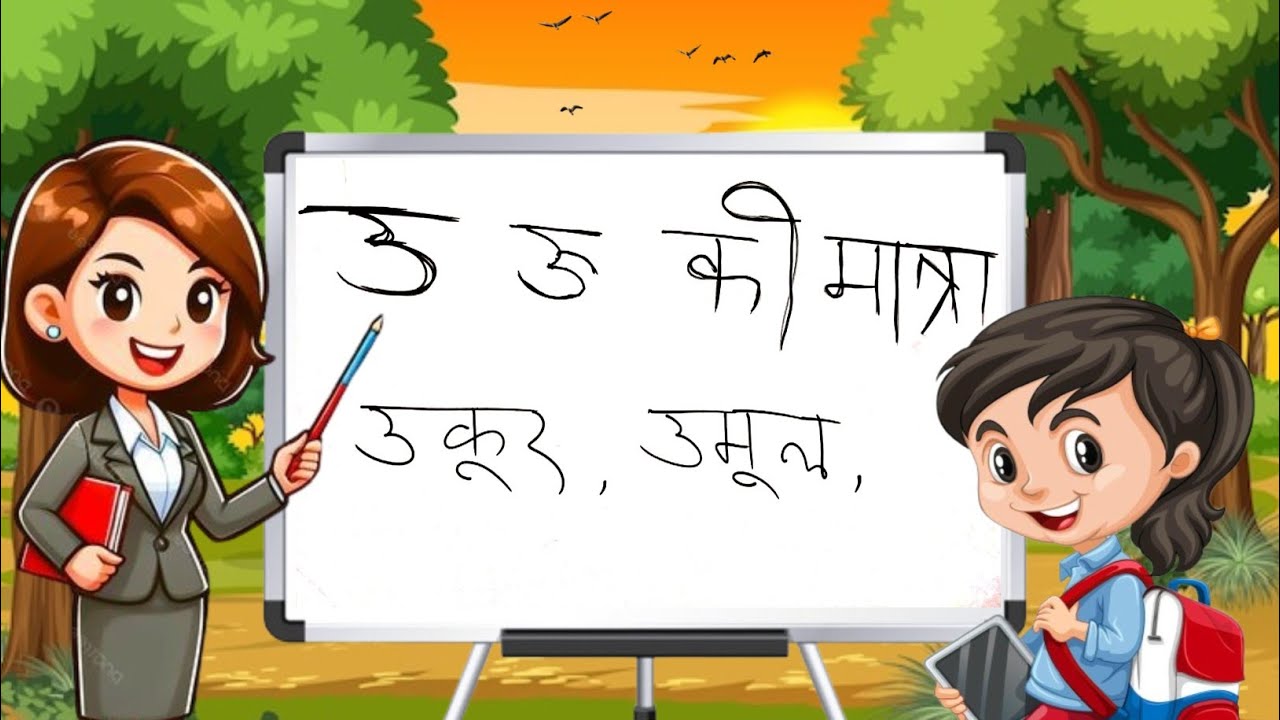 उ ऊ की मात्रा
उकूर, उमूल,